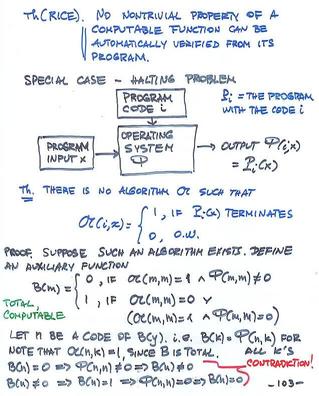 Th(RICE). NO NONTRIVIAL PROPERTY OF A
COMPUTABLE FUNCTION CAN BE
AUTOMATICALLY VERIFIED FROM ITS
PROGRAM.
SPECIAL CASE - HALTING PROBLEM
PROGRAM
CODE i
P_i = THE PROGRAM
WITH THE CODE i
PROGRAM
INPUT x
OPERATING
SYSTEM
Φ
→ OUTPUT Φ(i,x)
= P_i(x)
Th. THERE IS NO ALGORITHM α SUCH THAT
α(i,x) = { 1, IF P_i(x) TERMINATES
0, O.W.
PROOF. SUPPOSE SUCH AN ALGORITHM EXISTS. DEFINE
AN AUXILIARY FUNCTION
B(m) = { 0, IF α(m,m)=1 ∧ Φ(m,m)≠0
1, IF α(m,m)=0 ∨
(α(m,m)=1 ∧ Φ(m,m)=0)
TOTAL,
COMPUTABLE
LET n BE A CODE OF B(y). i.e. B(k)=Φ(n,k) FOR
ALL k's
NOTE THAT α(n,k)=1, SINCE B IS TOTAL.
CONTRADICTION!
B(n)=0 => Φ(n,n)≠0 => B(n)≠0
B(n)≠0 => B(n)=1 => Φ(n,n)=0 => B(n)=0
-103-